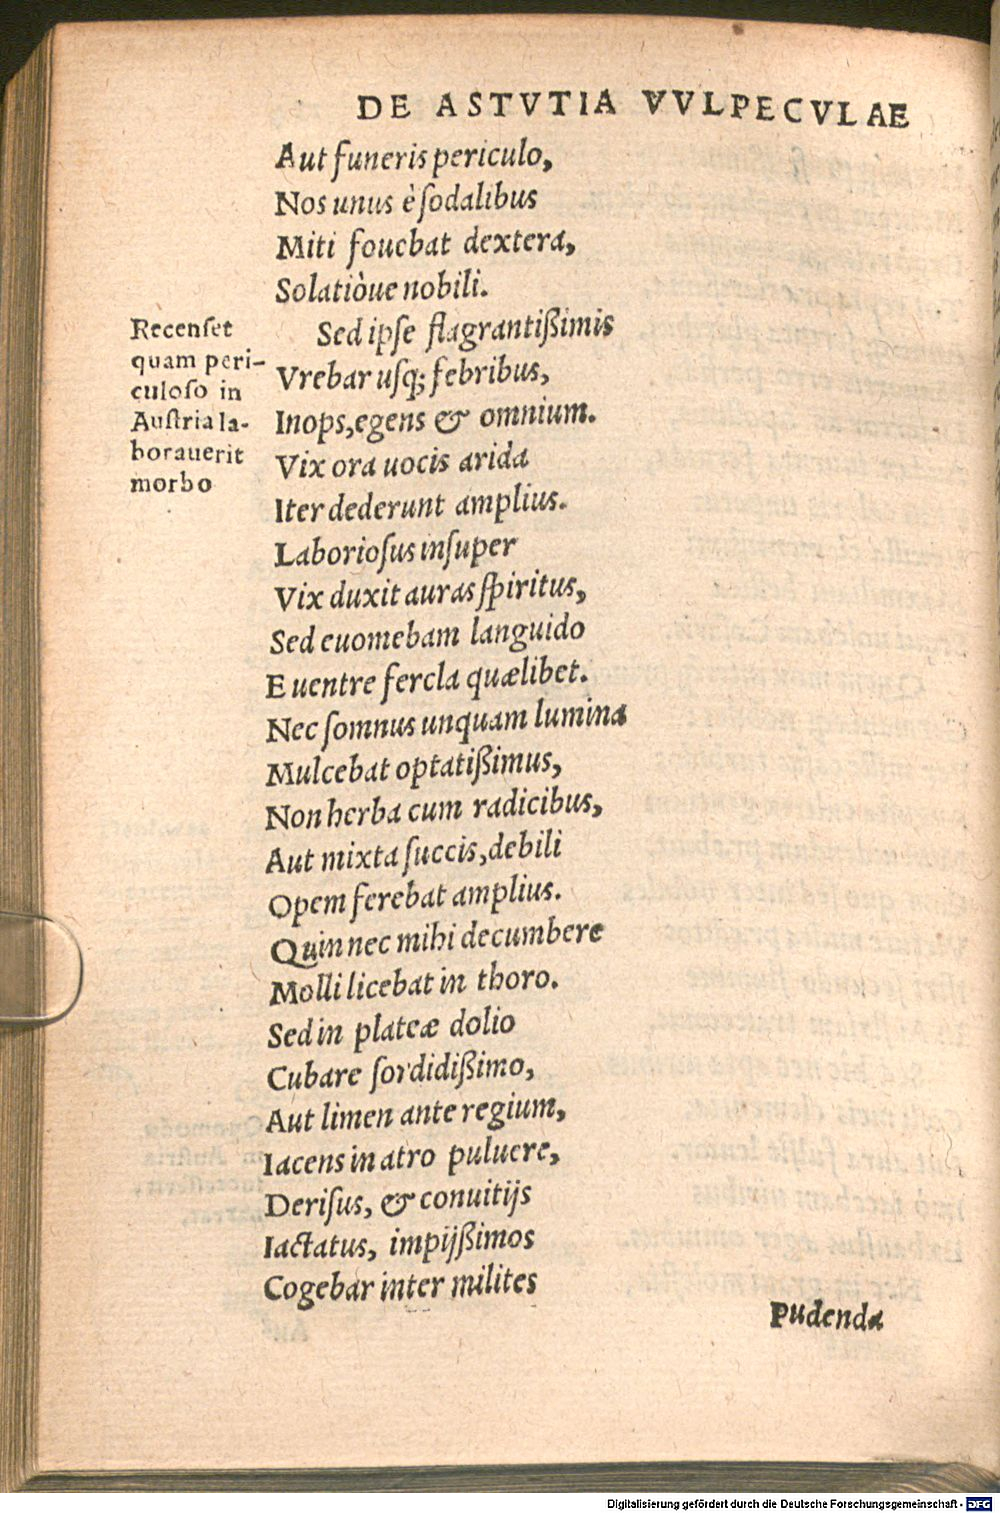 DE ASTVTIA VVLPECVLAE
Aut funeris periculo,
Nos unus è ſodalibus
Miti fouebat dextera,
Solatiòue nobili.
Sed ipſe flagrantiſsimis
Vrebar uſq; febribus,
Inops, egens & omnium.
Vix ora uocis arida
Iter dederunt amplius.
Laborioſus inſuper
Vix duxit auras ſpiritus,
Sed euomebam languido
E uentre fercla quælibet.
Nec ſomnus unquam lumina
Mulcebat optatißimus,
Non herba cum radicibus,
Aut mixta ſuccis, debili
Opem ferebat amplius.
Quin nec mihi decumbere
Molli licebat in thoro.
Sed in plateæ dolio
Cubare ſordidißimo,
Aut limen ante regium,
Iacens in atro puluere,
Deriſus, & conuitijs
Iactatus, impijßimos
Cogebar inter milites
Pudenda
Recenſet
quam peri-
culoſo in
Auſtria la-
borauerit
morbo
Digitalisierung gefördert durch die Deutsche Forschungsgemeinschaft - DFG